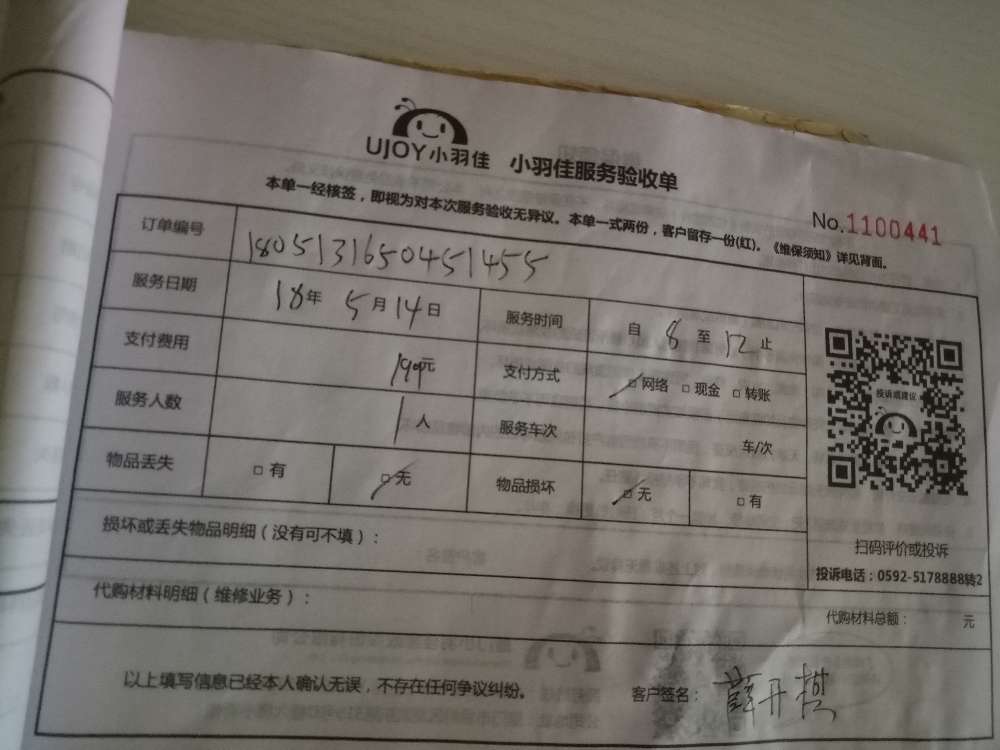 UJOY小羽佳 小羽佳服务验收单
No.1100441
本单一经核签，即视为对本次服务验收无异议。本单一式两份，客户留存一份(红)。《维保须知》详见背面。
订单编号 180513165045145 5
服务日期 18年 5月14日 服务时间 自 8 至 12 止
支付费用 199元 支付方式 □网络 □现金 □转账
服务人数 1人 服务车次 车/次
物品丢失 □有 □无 物品损坏 □无 □有
投诉或建议
扫码评价或投诉
投诉电话：0592-5178888转2
损坏或丢失物品明细（没有可不填）：
代购材料明细（维修业务）：
代购材料总额： 元
以上填写信息已经本人确认无误，不存在任何争议纠纷。 客户签名： 薛开棋